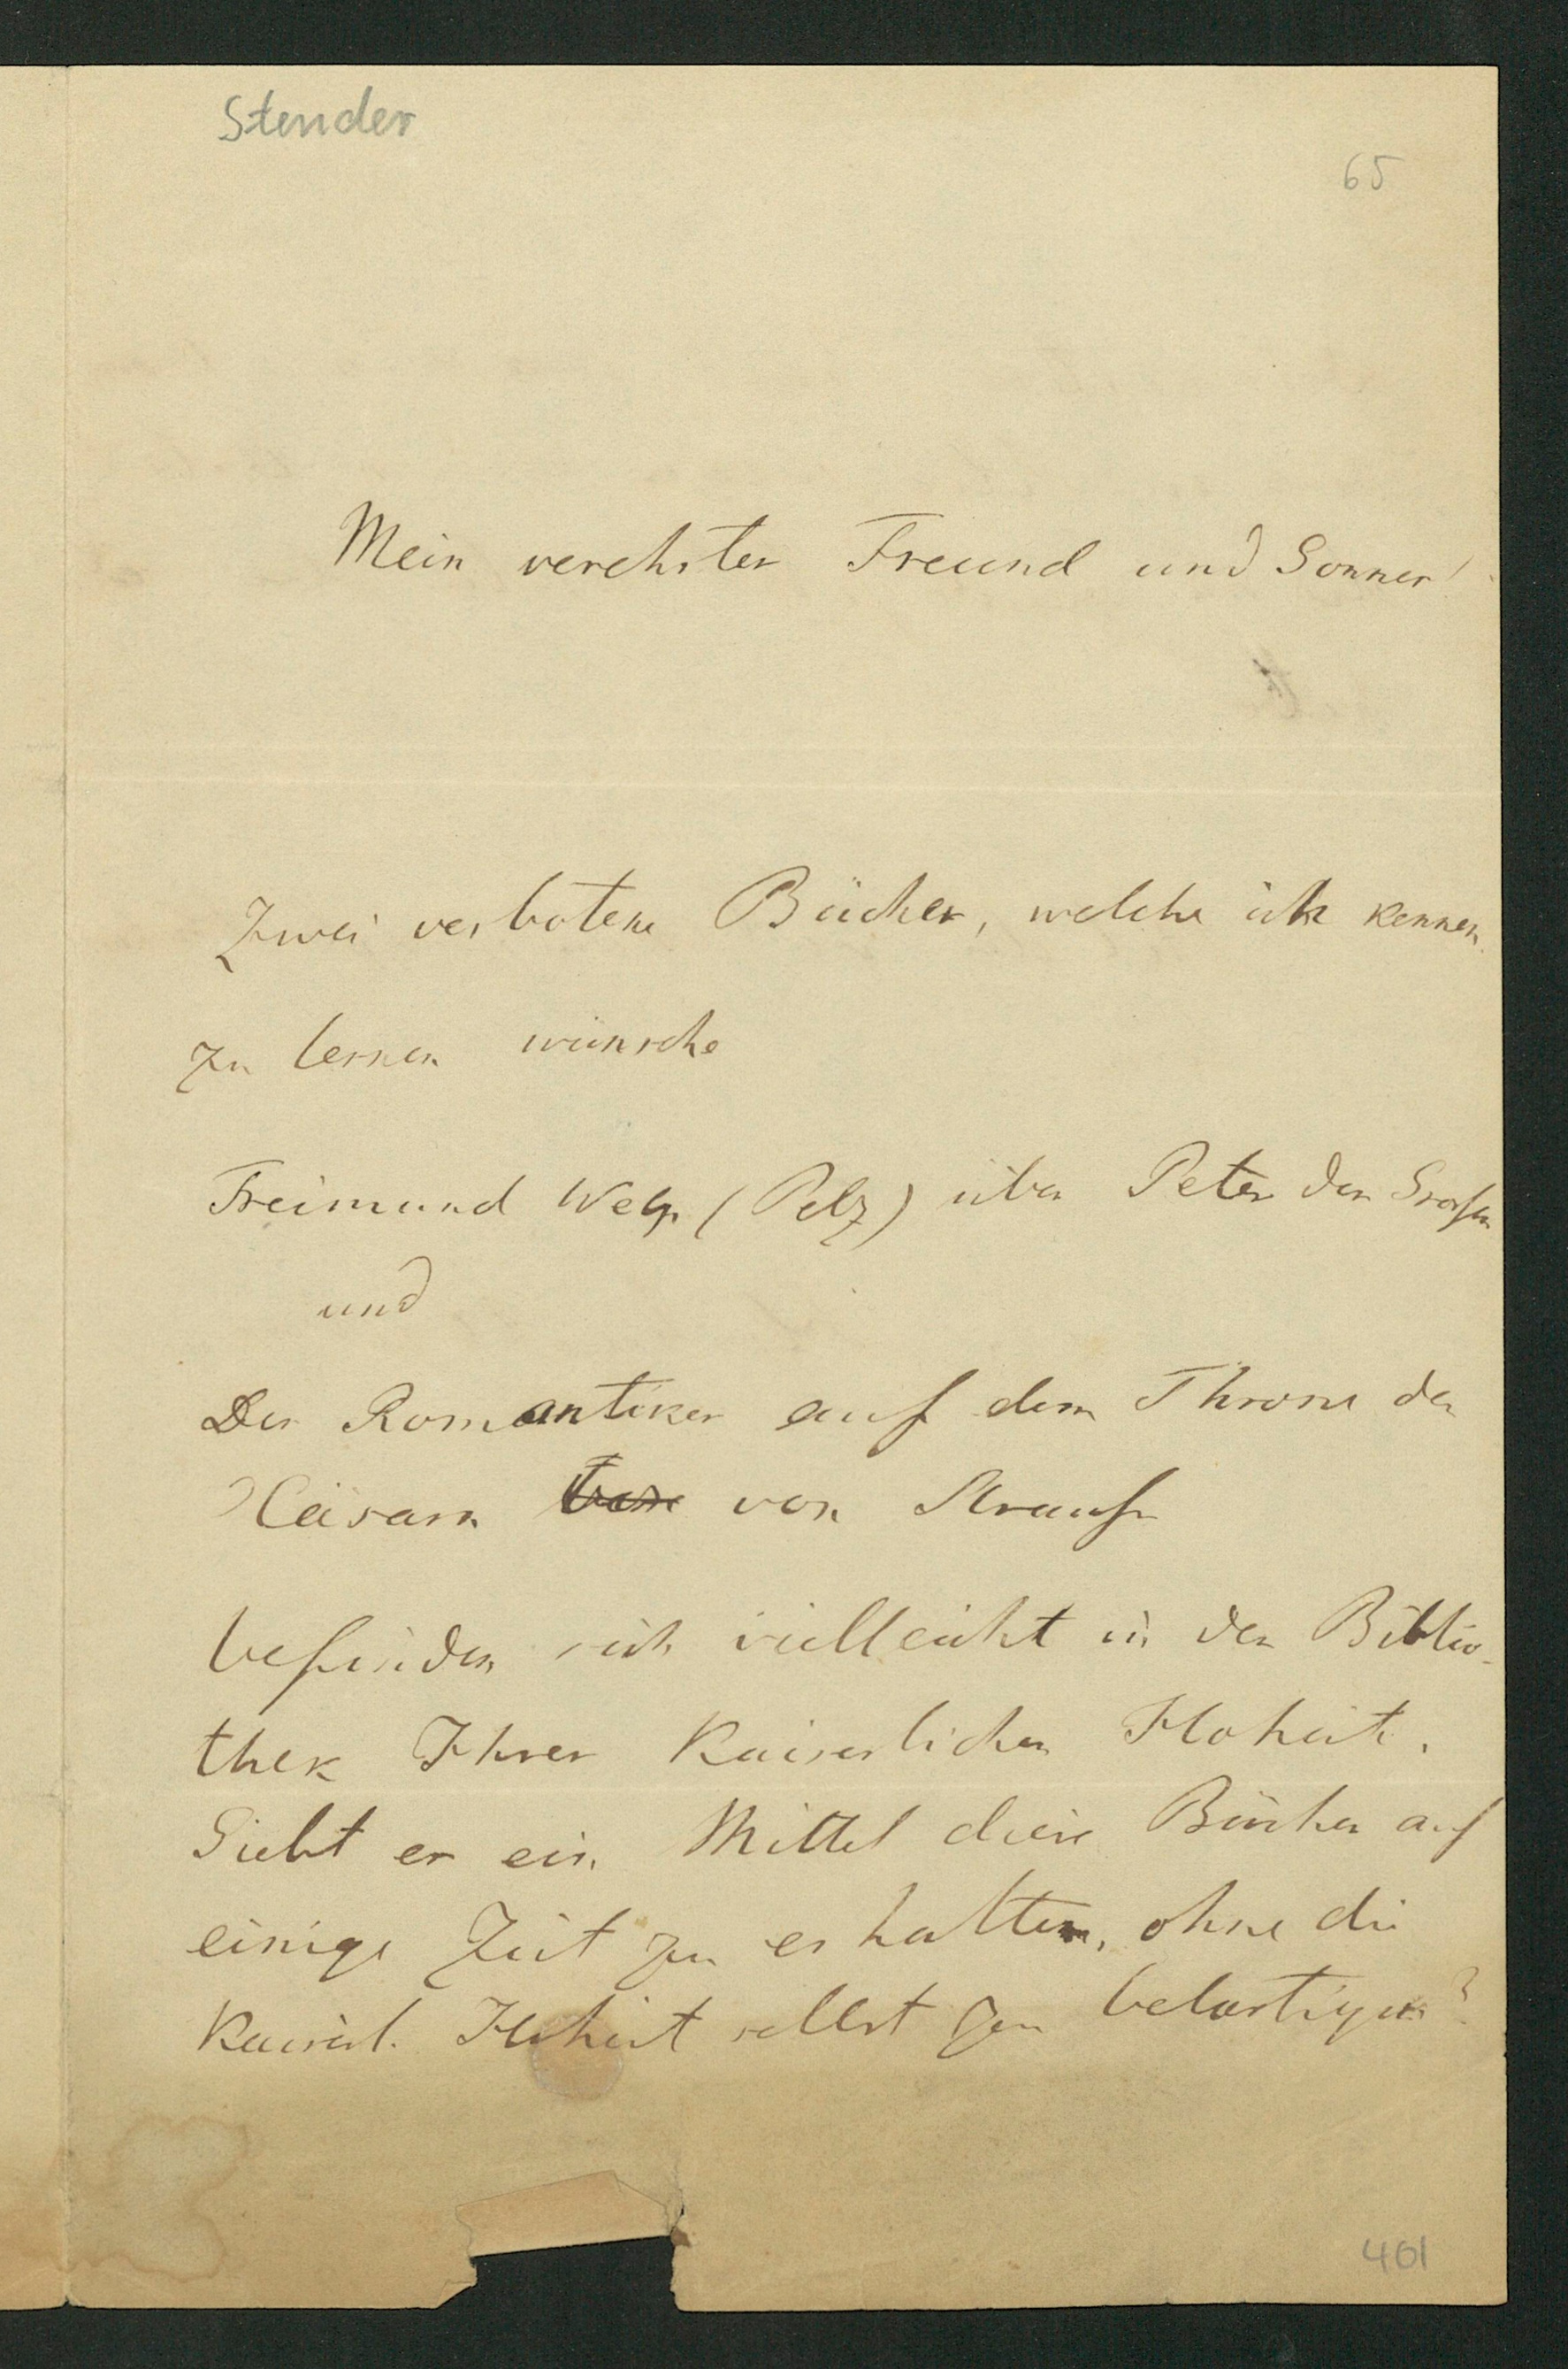 Stender
65
Mein verehrter Freund und Gönner!
Zwei verbotene Bücher, welche ich kennen
zu lernen wünsche
Freimund Welp (Pelz) über Peter den Großen
und
Der Romantiker auf dem Throne der
Cäsaren von Strauß
befinden sich vielleicht in der Biblio-
thek Ihrer Kaiserlichen Hoheit.
Giebt es ein Mittel diese Bücher auf
einige Zeit zu erhalten, ohne die
Kaiserl. Hoheit selbst zu belästigen?
461